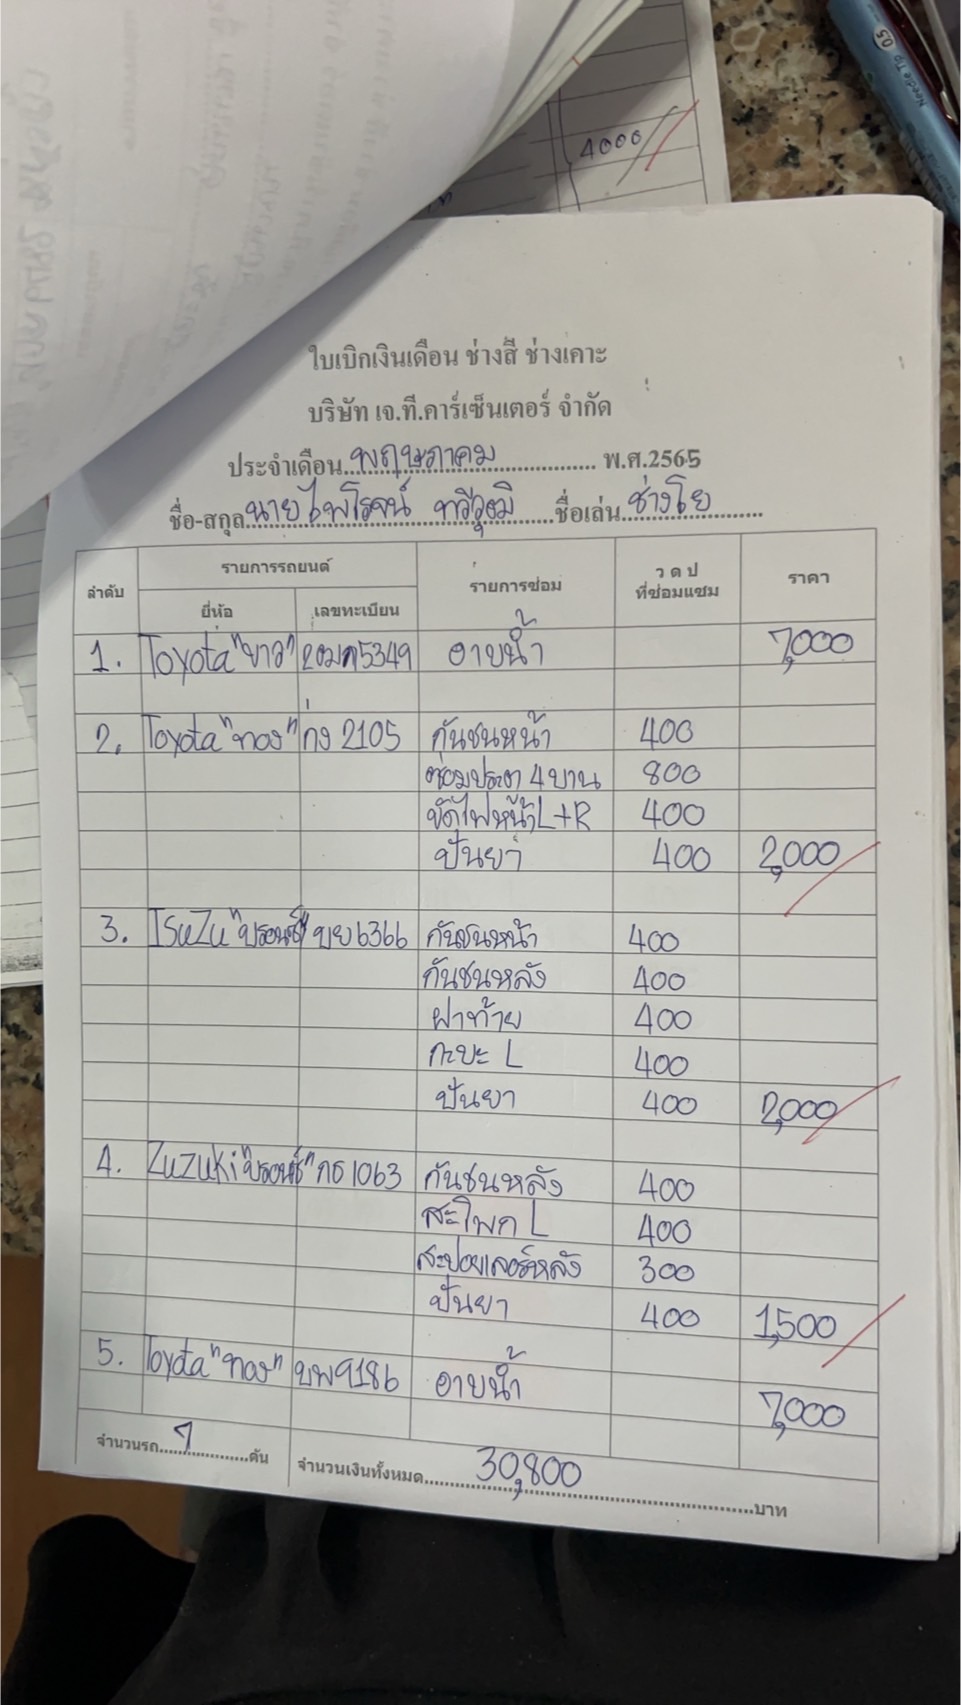 Needle Tip 0.5
4000
ใบเบิกเงินเดือน ช่างสี ช่างเคาะ
บริษัท เจ.ที.คาร์เซ็นเตอร์ จำกัด
ประจำเดือน พฤษภาคม พ.ศ.2565
ชื่อ-สกุล นายไพโรจน์ ทวีวุฒิ ชื่อเล่น ช่างโย
ลำดับ รายการรถยนต์ รายการซ่อม ว ด ป ที่ซ่อมแซม ราคา
ยี่ห้อ เลขทะเบียน
1. Toyota "ขาว" 2ฒก5349 อาบน้ำ 7,000
2. Toyota "ทอง" กง 2105 กันชนหน้า 400
ซ่อมประตู 4 บาน 800
ขัดไฟหน้า L+R 400
ปั่นยา 400 2,000
3. ISUZU "บรอนซ์" บย 6366 กันชนหน้า 400
กันชนหลัง 400
ฝาท้าย 400
กะบะ L 400
ปั่นยา 400 2,000
4. ZUZUKi "บรอนซ์" กธ 1063 กันชนหลัง 400
สะโพก L 400
สะปอยเลอร์หลัง 300
ปั่นยา 400 1,500
5. Toyota "ทอง" บพ9186 อาบน้ำ 7,000
จำนวนรถ 7 คัน จำนวนเงินทั้งหมด 30,800 บาท